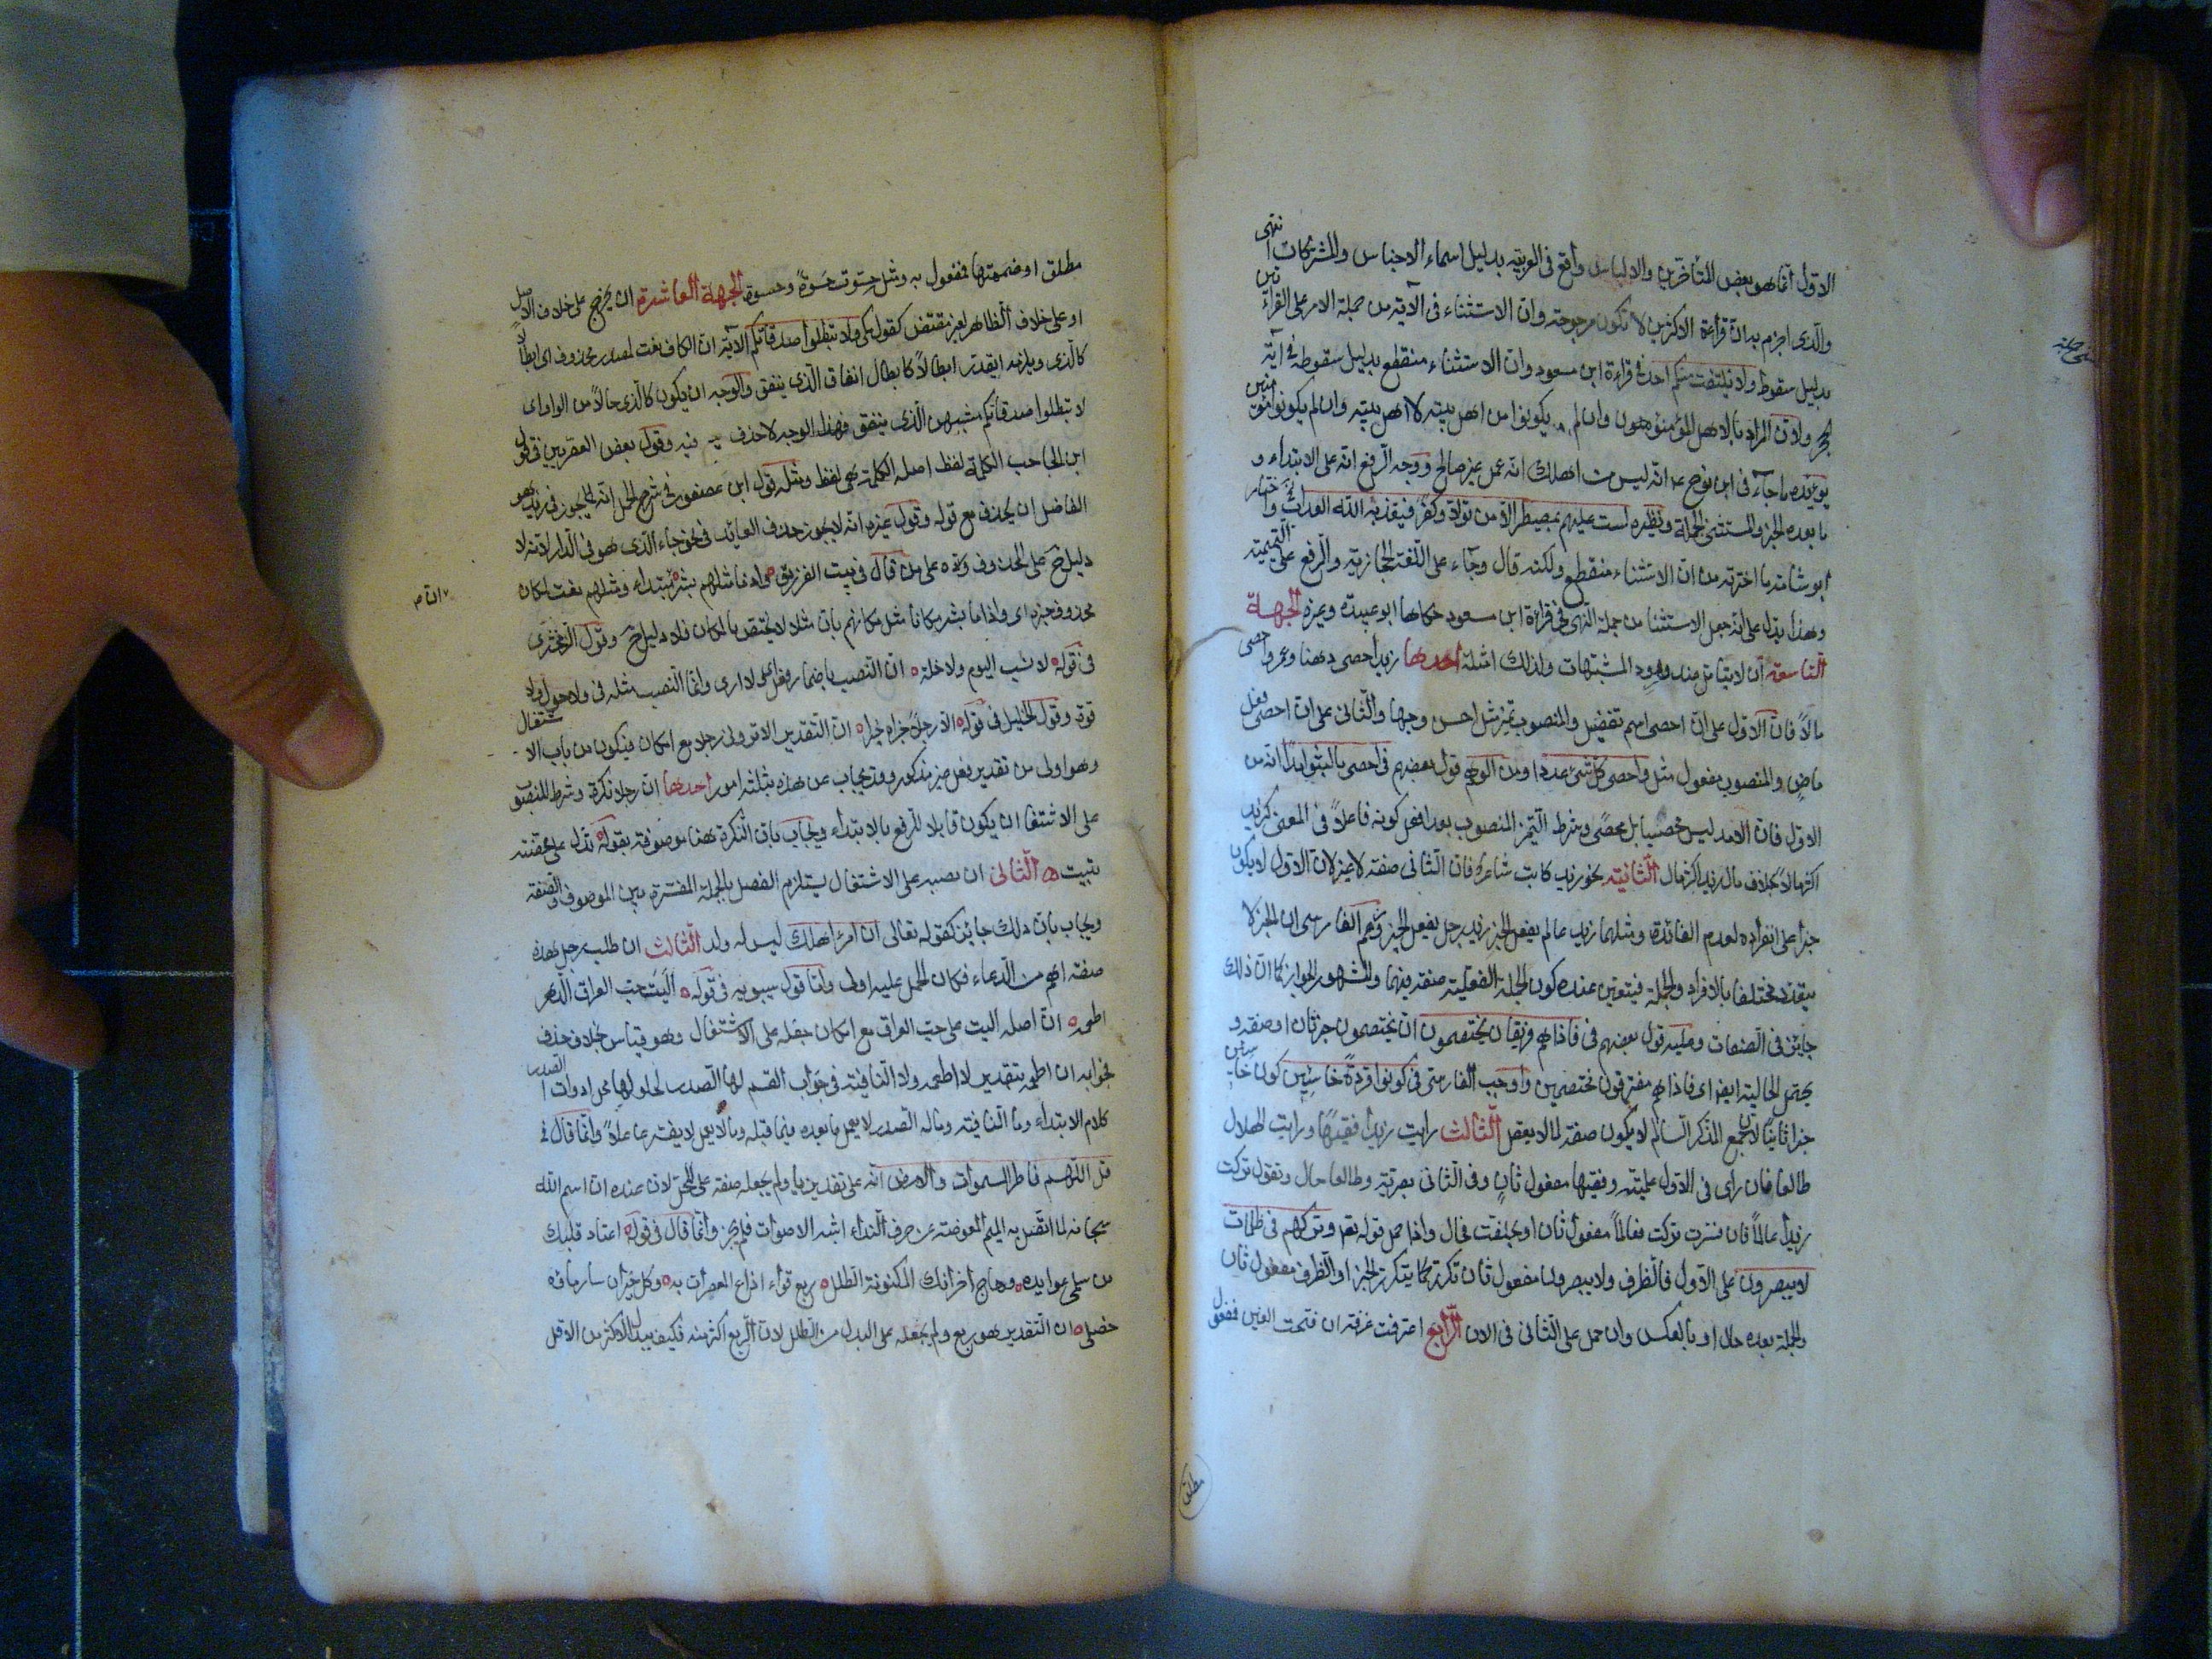 الاول انما هو بعض المتأخرين والالباس واقع فى العربية بدليل اسماء الاجناس والمشتركات انتهى
والذى اجزم به ان قراءة الاكثرين لا تكون مرجوحة وان الاستثناء فى الآية من جملة الامر على القراءتين
بدليل سقوط ولا يلتفت منكم احد فى قراءة ابن مسعود وان الاستثناء منقطع بدليل سقوطه فى آية
الحجر ولان المراد بالاهل المؤمنون وان لم يكونوا من اهل بيته لا اهل بيته وان لم يكونوا مؤمنين
يؤيده ما جاء فى ابن نوح عم انه ليس من اهلك انه عمل غير صالح ووجه الرفع انه على الابتداء و
ما بعده الخبر والمستثنى الجملة ونظيره لست عليهم بمصيطر الا من تولى وكفر فيعذبه الله العذاب واختار
ابو شامة ما اخترته من ان الاستثناء منقطع ولكنه قال وجاء على اللغة الحجازية والرفع على التميمية
وهذا يدل على انه جعل الاستثنا من جملة النهى فى قراءة ابن مسعود حكاها ابو عبيدة وغيره الجهة
التاسعة ان لا يتأمل عند وجود المشتبهات ولذلك امثلة احدها زيد احصى ذهنا وعمرو احصى
مالا فان الاول على ان احصى اسم تفضيل والمنصوب تميز مثل احسن وجها والثانى على ان احصى فعل
ماض والمنصوب مفعول مثل واحصى كل شئ عددا ومن الوهم قول بعضهم فى احصى لما لبثوا امدا انه من
الاول فان الامد ليس محصيا بل محصى وشرط التميز المنصوب بعد افعل كونه فاعلا فى المعنى كزيد
اكثر مالا بخلاف مال زيد اكثر مال الثانية نحو زيد كاتب شاعر فان الثانى صفة لا غير لان الاول لا يكون
خبرا على انفراده لعدم الفائدة ومثلهما زيد عالم يفعل الخير زيد رجل يفعل الخير وزعم الفارسى ان الخبر لا
يتعدد مختلفا بالافراد والجملة فيتعين عنده كون الجملة الفعلية صفة فيهما والمشهور الجواز كما ان ذلك
جايز فى الصفات وعليه قول بعضهم فى فاذا هم فريقان يختصمون ان يختصمون خبر ثان او صفة و
يحتمل الحالية ايضا اى فاذا هم مفترقون مختصمين واوجب الفارسى فى كونوا قردة خاسئين كون خاسئين
خبرا ثانيا لان جمع المذكر السالم لا يكون صفة لما لا يعقل الثالث رايت زيدا فقيها ورايت الهلال
طالعا فان راى فى الاول علمية وفقيها مفعول ثان وفى الثانى بصرية وطالعا حال وتقول تركت
زيدا عالما فان فسرت تركت فعالما مفعول ثان او بخلفت فحال واذا حمل قوله تعالى وتركهم فى ظلمات
لا يبصرون على الاول فالظرف ولا يبصرون مفعول ثان تكرر كما يتكرر الخبر او الظرف مفعول ثان
والجملة بعده حال او بالعكس وان حمل على الثانى فى الان الرابع اغترفت غرفة ان فتحت الغين فمفعول
مطلق
مطلق او ضممتها فمفعول به ومثل حسوت حسوة وحسوة الجهة العاشرة ان يخرج على خلاف الاصل
او على خلاف الظاهر لغير مقتض كقول مكى ولا تبطلوا صدقاتكم الآية ان الكاف نعت لمصدر محذوف اى ابطالا
كالذى ويلزمه ان يقدر ابطالا كابطال انفاق الذى ينفق والوجه ان يكون كالذى حالا من الواو اى
لا تبطلوا صدقاتكم مشبهين الذى ينفق فهذا الوجه لا حذف فيه وقول بعض العصريين فى قول
ابن الحاجب الكلمة لفظ اصله الكلمة هى لفظ ومثله قول ابن عصفور فى شرح الجمل انه يجوز فى زيد هو
الفاضل ان يحذف مع قوله وقول غيره انه لا يجوز حذف العايد فى نحو جاء الذى هو فى الدار لانه لا
دليل ح على المحذوف ورده على من قال فى بيت الفرزدق واذ ما مثلهم بشر مبتداء ومثلهم نعت لمكان
محذوف خبره اى واذا ما بشر مكانا مثل مكانهم بان مثلا لا يختص بالمكان فلا دليل ح وقول الزمخشرى
فى قوله لا نسب اليوم ولا خلة ان النصب باضمار فعل اى لا ارى وانما النصب مثله فى ولا حول ولا
قوة وقول الخليل فى قوله الا رجلا جزاه خيرا ان التقدير الا ترونى رجلا مع امكان ان يكون من باب الاشتغال
وهو اولى من تقدير فعل غير مذكور وقد يجاب عن هذه بثلثة امور احدها ان رجلا نكرة وشرط المنصوب
على الاشتغال ان يكون قابلا للرفع بالابتداء ويجاب بان النكرة هنا موصوفة بقوله تدل على محصلة
تبيت الثانى ان نصبه على الاشتغال يستلزم الفصل بالجملة المفسرة بين الموصوف والصفة
ويجاب بان ذلك جايز كقوله تعالى ان امرؤ هلك ليس له ولد الثالث ان طلب رجل هذه
صفته اهم من الدعاء فكان الحمل عليه اولى واما قول سيبويه فى قوله آليت حب العراق الدهر
اطعمه ان اصله آليت على حب العراق مع امكان جعله على الاشتغال وهو قياس بخلاف حذف
فجوابه ان اطعمه بتقدير لا اطعمه ولا النافية فى جواب القسم لها الصدر لحلولها محل ادوات الصدر
كلام الابتداء وما النافية وما له الصدر لا يعمل ما بعده فيما قبله وما لا يعمل لا يفسر عاملا وانما قال فى
قل اللهم فاطر السموات والارض انه على تقدير يا ولم يجعله صفة على المحل لان عنده ان اسم الله
سبحانه لما اتصل به الميم المعوضة عن حرف النداء اشبه الاصوات فلم يجز وانما قال فى قوله اعتاد قلبك
من سلمى عوايده وهاج احزانك المكنونة الطلل ربع قواء اذاع المعصرات به وكل حيران سار ماؤه
خضل ان التقدير هو ربع ولم يجعله على البدل من الطلل لان الربع اكثر منه فكيف يبدل الاكثر من الاقل